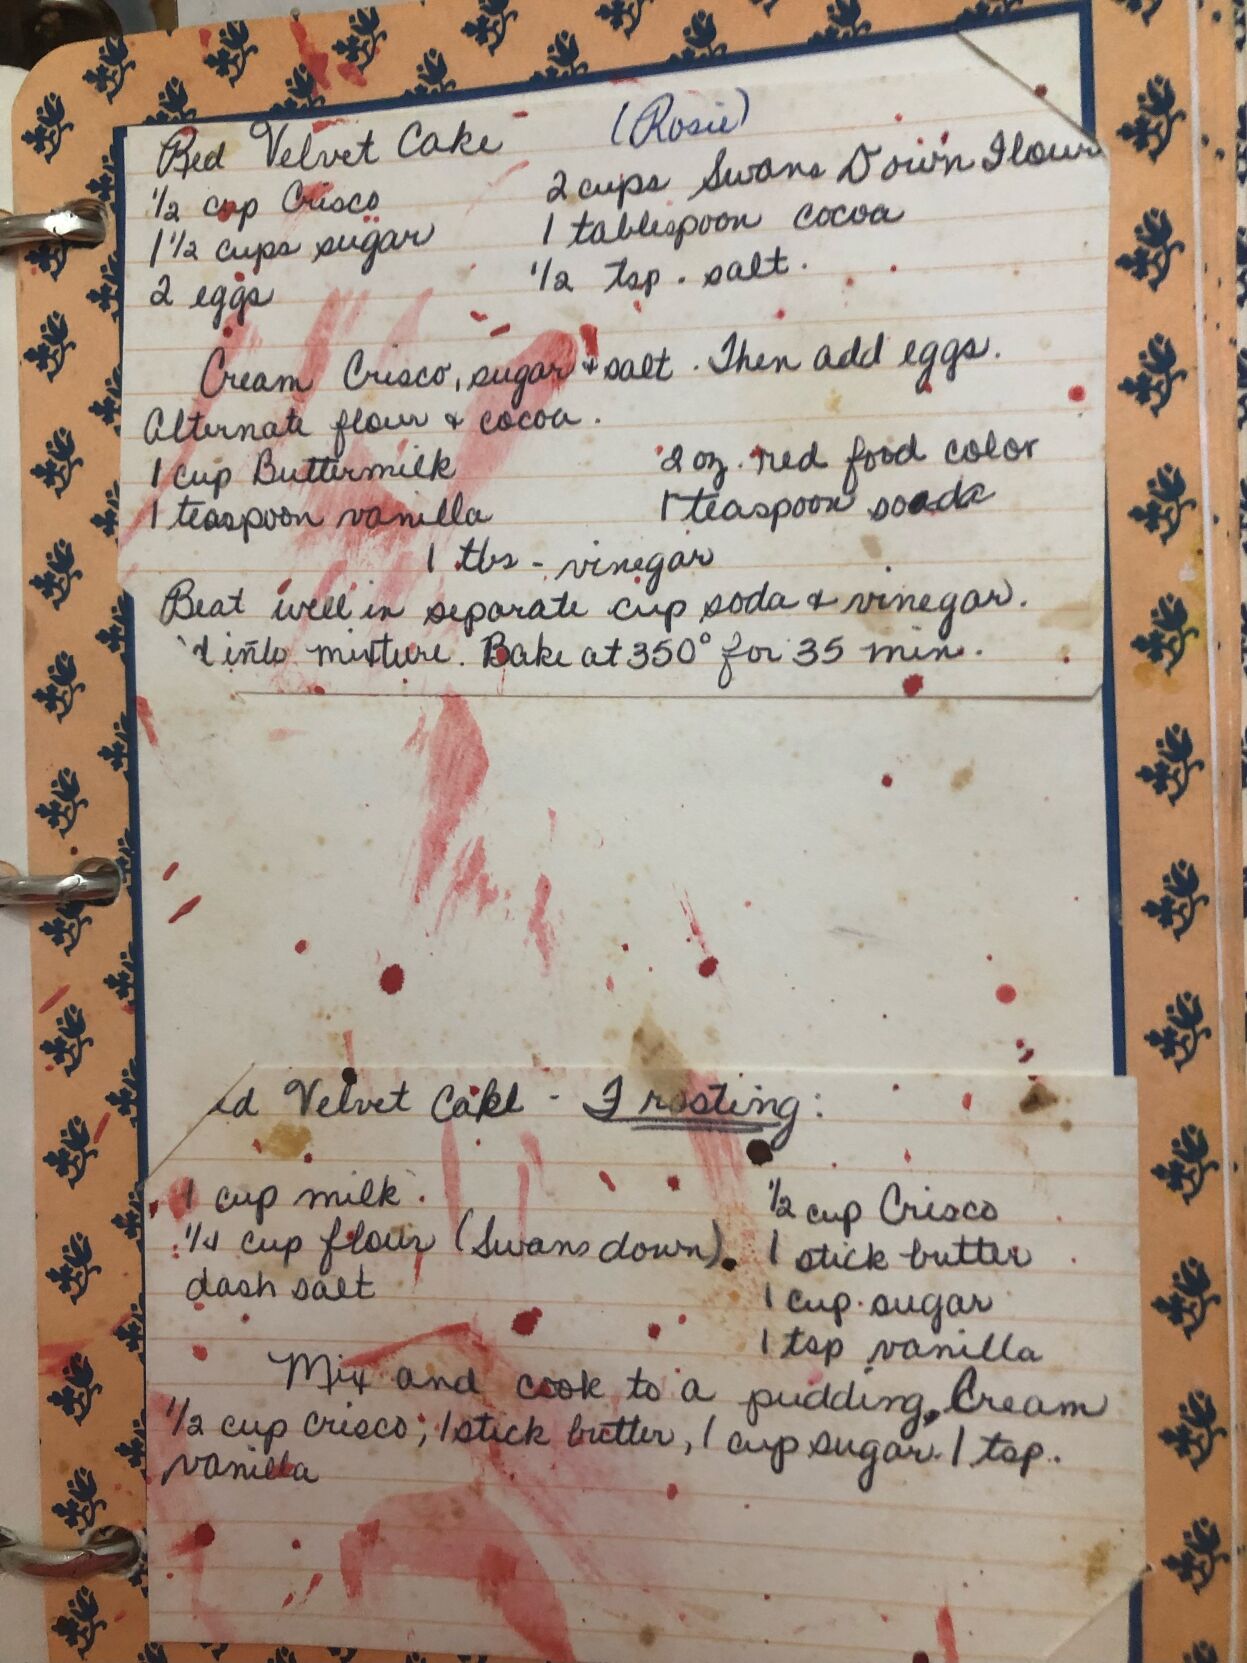 Red Velvet Cake (Rosie)
1/2 cup Crisco 2 cups Swans Down Flour
1 1/2 cups sugar 1 tablespoon cocoa
2 eggs 1/2 tsp. salt.
Cream Crisco, sugar + salt. Then add eggs.
Alternate flour + cocoa.
1 cup Buttermilk 2 oz. red food color
1 teaspoon vanilla 1 teaspoon soda
1 tbs - vinegar
Beat well in separate cup soda + vinegar.
into mixture. Bake at 350° for 35 min.
ed Velvet Cake - Frosting:
1 cup milk. 1/2 cup Crisco
1/4 cup flour (Swans down). 1 stick butter
dash salt 1 cup sugar
1 tsp vanilla
Mix and cook to a pudding. Cream
1/2 cup crisco, 1 stick butter, 1 cup sugar. 1 tsp.
vanilla